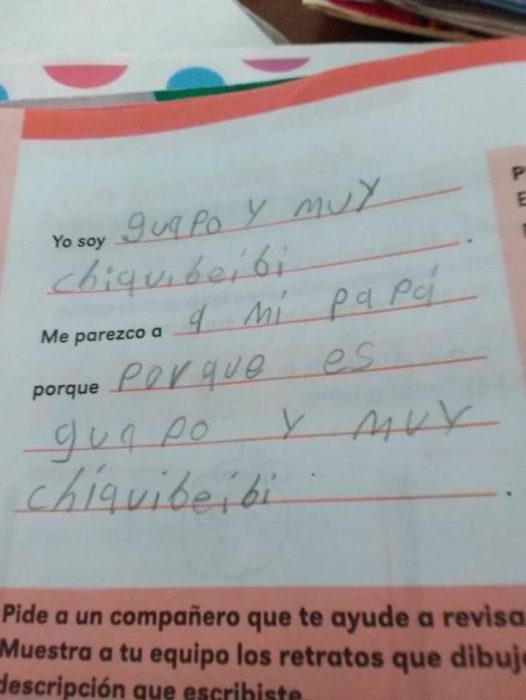 Yo soy guapo y muy
chiquibeibi.
Me parezco a a mi papá
porque porque es
guapo y muy
chiquibeibi.
Pide a un compañero que te ayude a revisa
Muestra a tu equipo los retratos que dibuj
descripción que escribiste
P
E